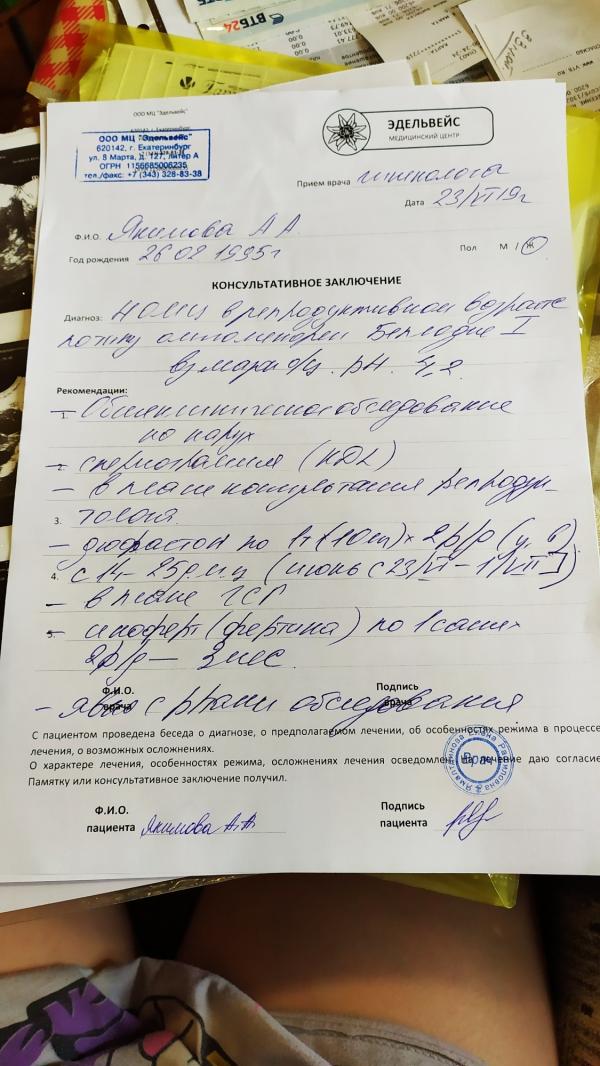 ВТБ24
ООО МЦ "Эдельвейс"
620142, г. Екатеринбург
ООО МЦ "Эдельвейс"
620142, г. Екатеринбург
ул. 8 Марта, д. 127, литер А
ОГРН 1156685006235
тел./факс: +7 (343) 328-83-38
ЭДЕЛЬВЕЙС
МЕДИЦИНСКИЙ ЦЕНТР
Прием врача гинеколога
Дата 23/VI 19г
Ф.И.О. Якимова А А
Год рождения 26 02 1995г Пол М / Ж
КОНСУЛЬТАТИВНОЕ ЗАКЛЮЧЕНИЕ
Диагноз: НОМЦ в репродуктивном возрасте
по типу Бесплодие I
Рекомендации:
1. – Общеклиническое обследование
по нарух
– спермограмма (KDL)
– в плане консультация репродук-
3. толога.
– дюфастон по 1т (10мг) х 2 р/р
4. с 14 – 25 д.м.ц (июнь с 23/VI – 1/VII)
– в плане ГСГ
5. – иноферт (фертина) по 1 саше х
2 р/р – 3 мес.
Ф.И.О. Подпись
врача врача
– явка с р-тами обследования
С пациентом проведена беседа о диагнозе, о предполагаемом лечении, об особенностях режима в процессе
лечения, о возможных осложнениях.
О характере лечения, особенностях режима, осложнениях лечения осведомлен. На лечение даю согласие
Памятку или консультативное заключение получил.
Врач
Ф.И.О. Подпись
пациента Якимова А.А. пациента